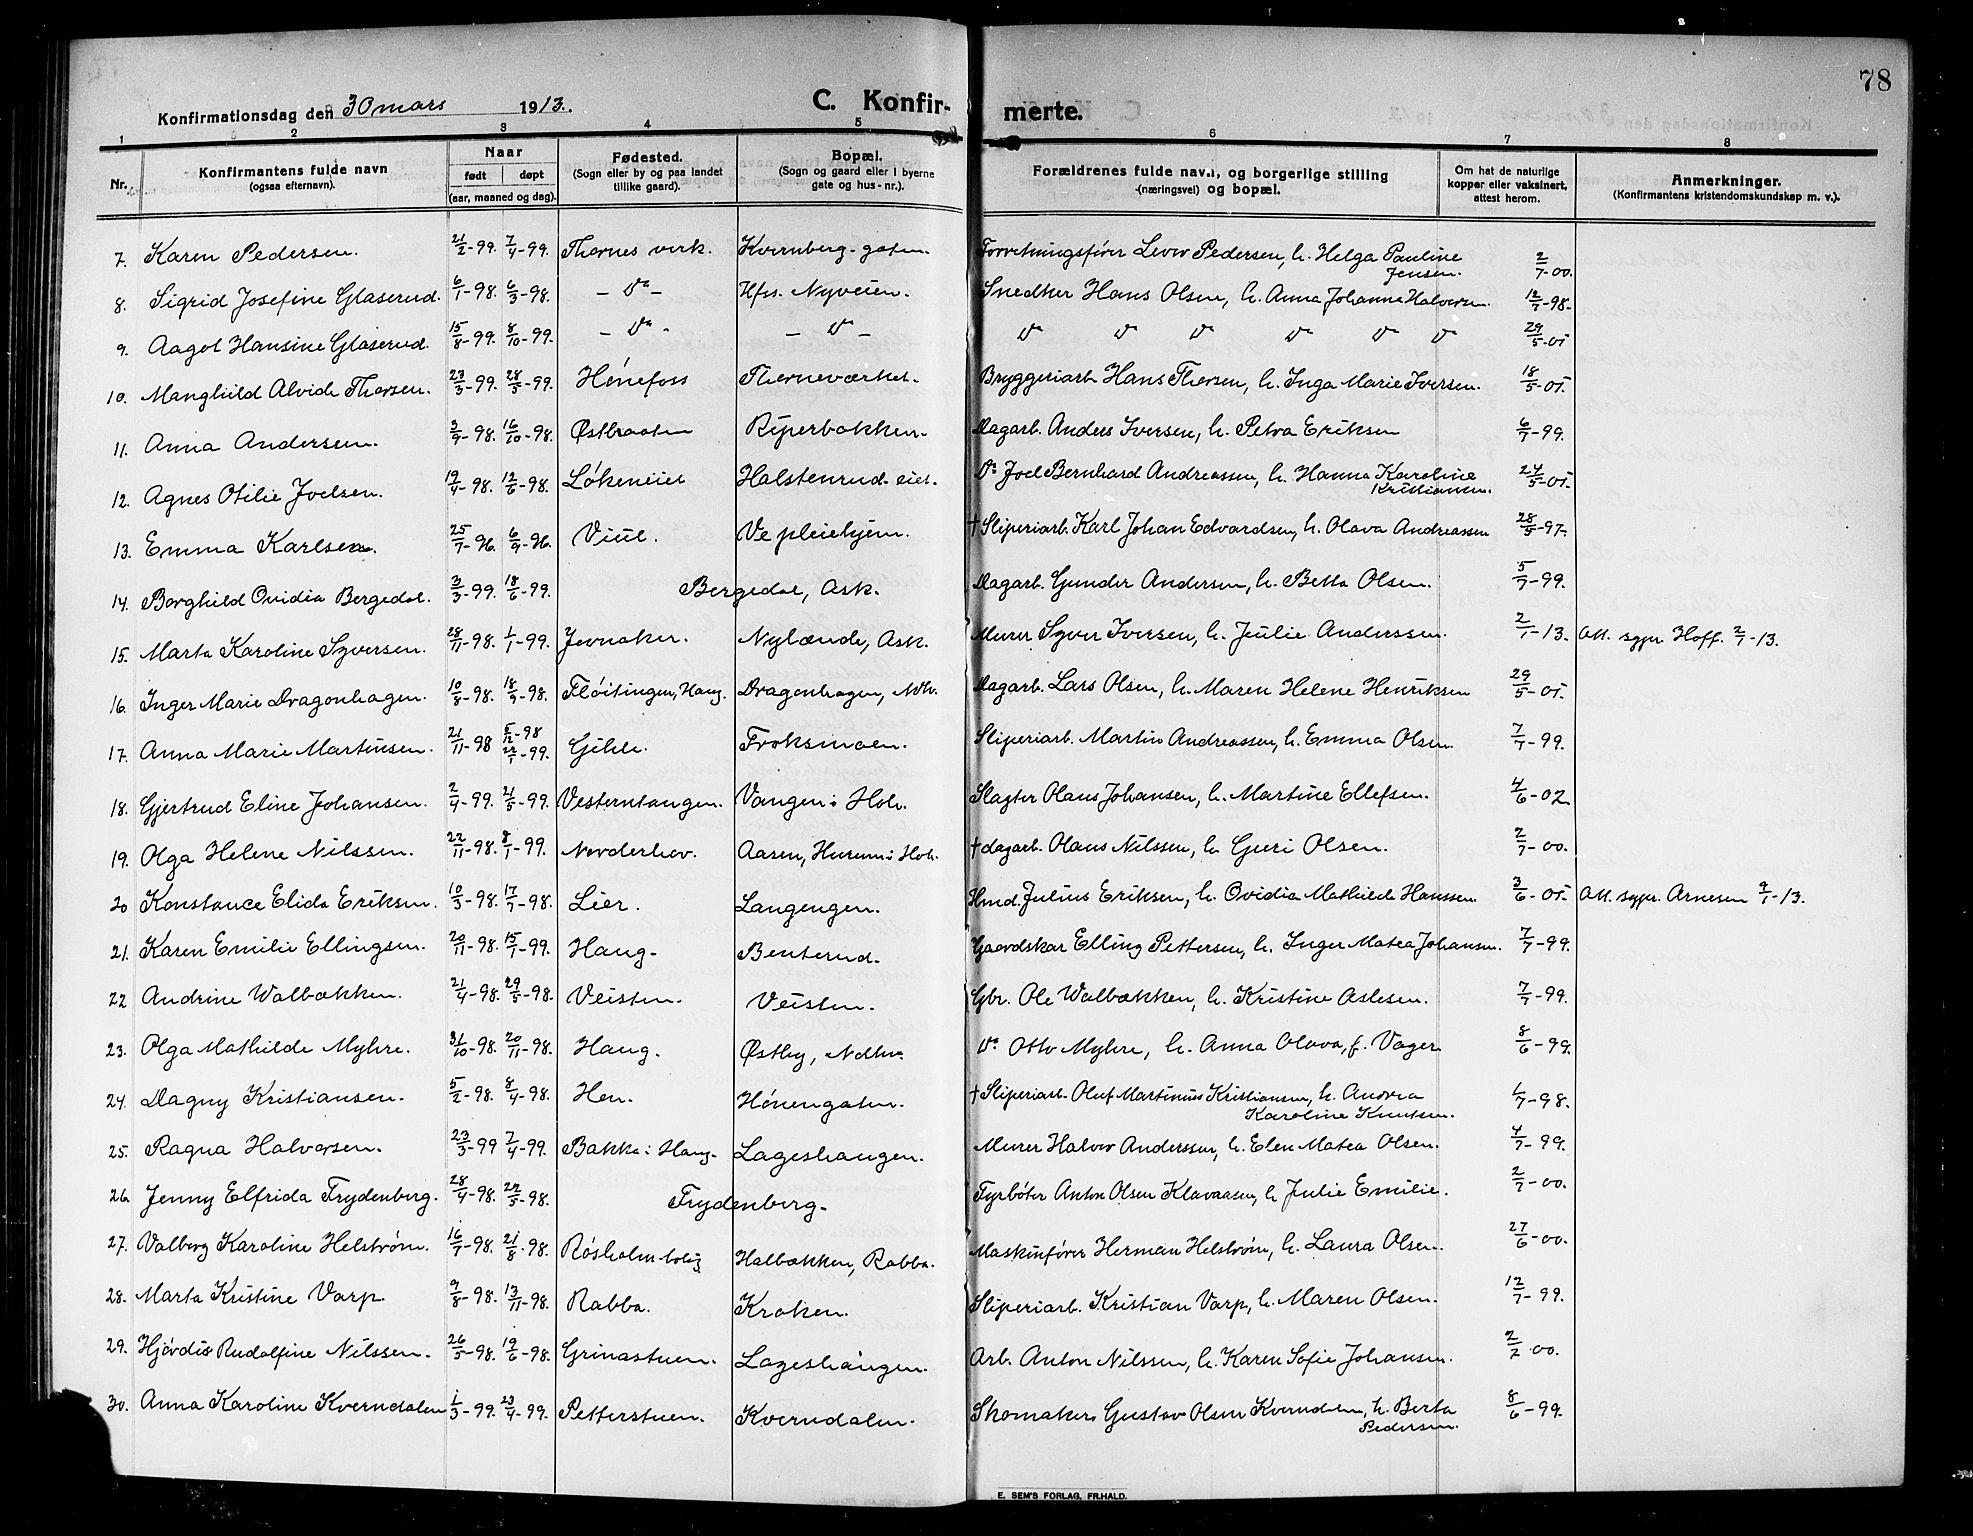 78
Konfirmationsdag den 30 mars 1913. C. Konfir- merte.
1 2 3 4 5 6 7 8
Nr. Konfirmantens fulde navn (ogsaa efternavn). Naar født døpt (aar, maaned og dag). Fødested. (Sogn eller by og paa landet tillike gaard). Bopæl. (Sogn og gaard eller i byerne gate og hus-nr.). Forældrenes fulde navn, og borgerlige stilling (næringsvei) og bopæl. Om hat de naturlige kopper eller vaksinert, attest herom. Anmerkninger. (Konfirmantens kristendomskundskap m. v.).
7. Karen Pedersen. 21/2-99. 7/4-99. Thornes verk. Kvernberg-gaten. Forretningsfører Lever Pedersen, h. Helga Pauline Jensen. 2/7-00.
8. Sigrid Josefine Glaserud. 6/1-98. 6/3-98. - Do - Hfss. Nyveien. Snedker Hans Olsen, h. Anna Johanne Halvorsen. 12/7-98.
9. Aagot Hansine Glaserud. 15/8-99. 8/10-99. - Do - - Do - Do Do Do Do Do Do 29/5-05
10. Manghild Alvide Thorsen. 23/3-99. 28/5-99. Hönefoss Thorneværket. Bryggeriarb. Hans Thorsen, h. Inga Marie Iversen. 18/5-05.
11. Anna Andersen. 3/9-98. 16/10-98. Østbraaten Riperbakken. Dagarb. Anders Iversen, h. Petra Eriksen 6/7-99.
12. Agnes Otilie Joelsen. 19/4-98. 12/6-98. Løkeneiet Halstenrud-eiet. Do Joel Bernhard Andreassen, h. Hanna Karoline Kristiansen. 24/5-05.
13. Emma Karlsen. 25/7-96. 6/9-96. Viul. Ve pleiehjem. † Sliperiarb. Karl Johan Edvardsen, h. Olava Andreassen 28/5-97.
14. Borghild Ovidia Bergedal. 3/3-99. 18/6-99. Bergedal, Ask. Dagarb. Gunder Andersen, h. Betta Olsen. 5/7-99.
15. Marta Karoline Syversen. 28/11-98. 1/1-99. Jevnaker. Nylænde, Ask. Murer Syver Iversen, h. Julie Anderssen. 2/1-13. Att. sgpr. Hoff. 2/1-13.
16. Inger Marie Dragonhagen. 10/8-98. 18/9-98. Fløitingen, Haug. Dragonhagen, Ndh. Dagarb. Lars Olsen, h. Maren Helene Henriksen 29/5-05.
17. Anna Marie Martinsen. 21/11-98 5/12-98 22/1-99. Gihle. Froksmoen. Sliperiarb. Martin Andreassen, h. Emma Olsen. 7/7-99.
18. Gjertrud Eline Johansen. 2/4-99. 21/5-99. Vesterntangen. Vangen i Hole. Slagter Olaus Johansen, h. Martine Ellefsen. 4/6-02
19. Olga Helene Nilssen. 22/11-98. 8/1-99. Norderhov. Aasen, Hurum i Hole. † dagarb. Olaus Nilssen, h. Guri Olsen. 2/7-00.
20 Konstance Elida Eriksen. 10/3-98. 17/7-98. Lier. Langengen. Hmd. Julius Eriksen, h. Ovidia Mathilde Hanssen. 3/6-05. Att. sgpr. Arnesen 9/1-13.
21. Karen Emilie Ellingsen. 20/11-98. 15/1-99. Haug. Benterud. Gaardskar Elling Pettersen, h. Inger Matea Johansen. 7/7-99.
22 Andrine Walbækken. 21/4-98. 29/5-98. Veisten. Veisten. Gbr. Ole Walbækken, h. Kristine Aslesen. 7/7-99.
23. Olga Mathilde Myhre. 31/10-98. 20/11-98. Haug. Østby, Ndhv. Do Otto Myhre, h. Anna Olava, f. Vager 8/6-99.
24. Dagny Kristiansen. 5/2-98. 8/4-98. Hen. Hönengaten. † Sliperiarb. Oluf Martinius Kristiansen, h. Andrea Karoline Knutsen. 1/7-98.
25. Ragna Halvorsen. 23/3-99 7/4-99. Bakke i Haug. Lageshaugen. Murer Halvor Anderssen, h. Elen Matea Olsen. 4/7-99.
26. Jenny Elfrida Frydenberg. 28/4-98. 22/5-98. Frydenberg. Fyrbøter Anton Olsen Klavaasen, h. Julie Emilie. 2/7-00.
27. Valberg Karoline Helstrøm. 16/7-98. 21/8-98. Rösholm-bolig Halbækken, Rabba. Maskinfører Herman Helstrøm, h. Laura Olsen. 27/6-00.
28. Marta Kristine Varp. 9/8-98. 13/11-98. Rabba. Kroken. Sliperiarb. Kristian Varp, h. Maren Olsen. 12/7-99.
29. Hjördis Rudolfine Nilssen. 26/5-98. 19/6-98. Grinastuen. Lageshaugen. Arb. Anton Nilssen, h. Karen Sofie Johansen. 2/7-00.
30. Anna Karoline Kverndalen 1/3-99. 23/4-99. Petterstuen. Kverndalen. Skomaker Gustav Olsen Kverndalen, h. Berta Pedersen. 8/6-99.
E. SEM'S FORLAG, FR.HALD.